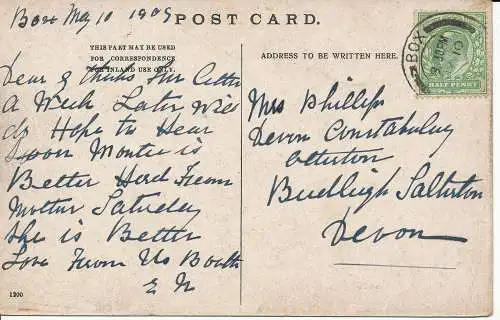 Box May 10 1909
POST CARD.
THIS PART MAY BE USED
FOR CORRESPONDENCE
FOR INLAND USE ONLY.
ADDRESS TO BE WRITTEN HERE.
BOX
HALF PENNY
Dear G Thanks for letter
A Week Later Will
do Hope to Hear
Montie is
Better Herd From
Mother Satuday
She is Better
Love From Us Booth
E N
Mrs Phillips
Devon Constabulay
Otterton
Budleigh Salterton
Devon
1200